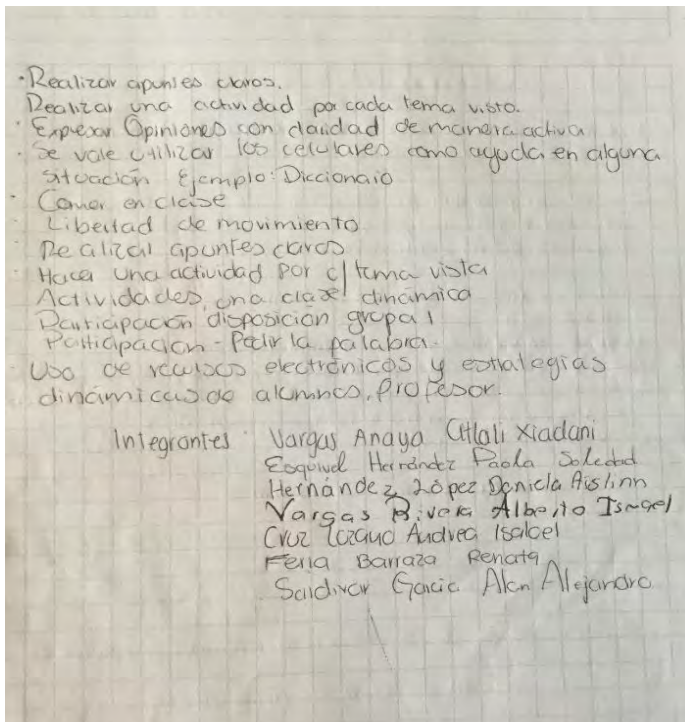 · Realizar apuntes claros.
Realizar una actividad por cada tema visto.
· Expresar Opiniones con claridad de manera activa
· Se vale utilizar los celulares como ayuda en alguna
situación Ejemplo: Diccionaio
· Comer en clase
· Libertad de movimiento
· Realizar apuntes claros
· Hacer una actividad por c/ tema vista
Actividades, una clase dinámica
Participación disposición grupal
Participación - Pedir la palabra.
· Uso de recursos electrónicos y estrategias
dinámicas de alumnos, Profesor.
Integrantes Vargas Anaya Citlali Xiadani
Esquivel Hernández Paola Soledad
Hernández López Daniela Aislinn
Vargas Rivera Alberto Ismael
Cruz Lozano Andrea Isabel
Feria Barraza Renata
Saldivar Garcia Alan Alejandro